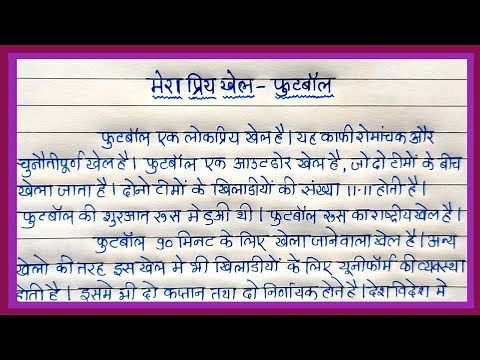 मेरा प्रिय खेल - फुटबॉल
फुटबॉल एक लोकप्रिय खेल है। यह काफी रोमांचक और
चुनौतीपूर्ण खेल है। फुटबॉल एक आउटडोर खेल है, जो दो टीमों के बीच
खेला जाता है। दोनो टीमों के खिलाडीयों की संख्या 11-11 होती है।
फुटबॉल की शुरआत रूस मे हुई थी। फुटबॉल रूस का राष्ट्रीय खेल है।
फुटबॉल 90 मिनट के लिए खेला जाने वाला खेल है। अन्य
खेलो की तरह इस खेल मे भी खिलाडीयों के लिए यूनीफॉर्म की व्यवस्था
होती है। इसमे भी दो कप्तान तथा दो निर्णायक होते है। देश विदेश मे